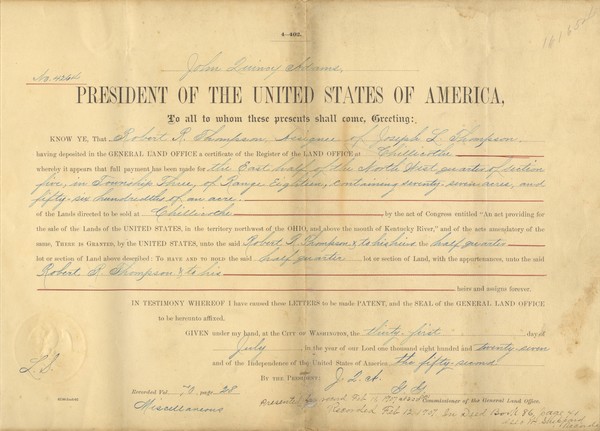 4-402.
John Quincy Adams,
No. 4264
PRESIDENT OF THE UNITED STATES OF AMERICA,
To all to whom these presents shall come, Greeting:
KNOW YE, That Robert R. Thompson, Assignee of Joseph L. Thompson
having deposited in the GENERAL LAND OFFICE a certificate of the Register of the LAND OFFICE at Chillicothe
whereby it appears that full payment has been made for the East half of the North West quarter of section
five, in Township Three, of Range Eighteen, containing seventy-seven acres, and
fifty-six hundredths of an acre,
of the Lands directed to be sold at Chillicothe by the act of Congress entitled "An act providing for
the sale of the Lands of the UNITED STATES, in the territory northwest of the OHIO, and above the mouth of Kentucky River," and of the acts amendatory of the
same, THERE IS GRANTED, by the UNITED STATES, unto the said Robert Thompson & to his heirs the half quarter
lot or section of Land above described: TO HAVE AND TO HOLD the said half quarter lot or section of Land, with the appurtenances, unto the said
Robert Thompson & to his
heirs and assigns forever.
IN TESTIMONY WHEREOF I have caused these LETTERS to be made PATENT, and the SEAL of the GENERAL LAND OFFICE
to be hereunto affixed.
GIVEN under my hand, at the CITY OF WASHINGTON, the thirty-first day of
July, in the year of our Lord one thousand eight hundred and twenty-seven
and of the Independence of the United States of America the fifty-second
L.S.
BY THE PRESIDENT: J. Q. A.
G. G.
Commissioner of the General Land Office.
Recorded Vol. page 28
Miscellaneous
Presented Feb
Recorded Feb 12 In Deed Book 86, page